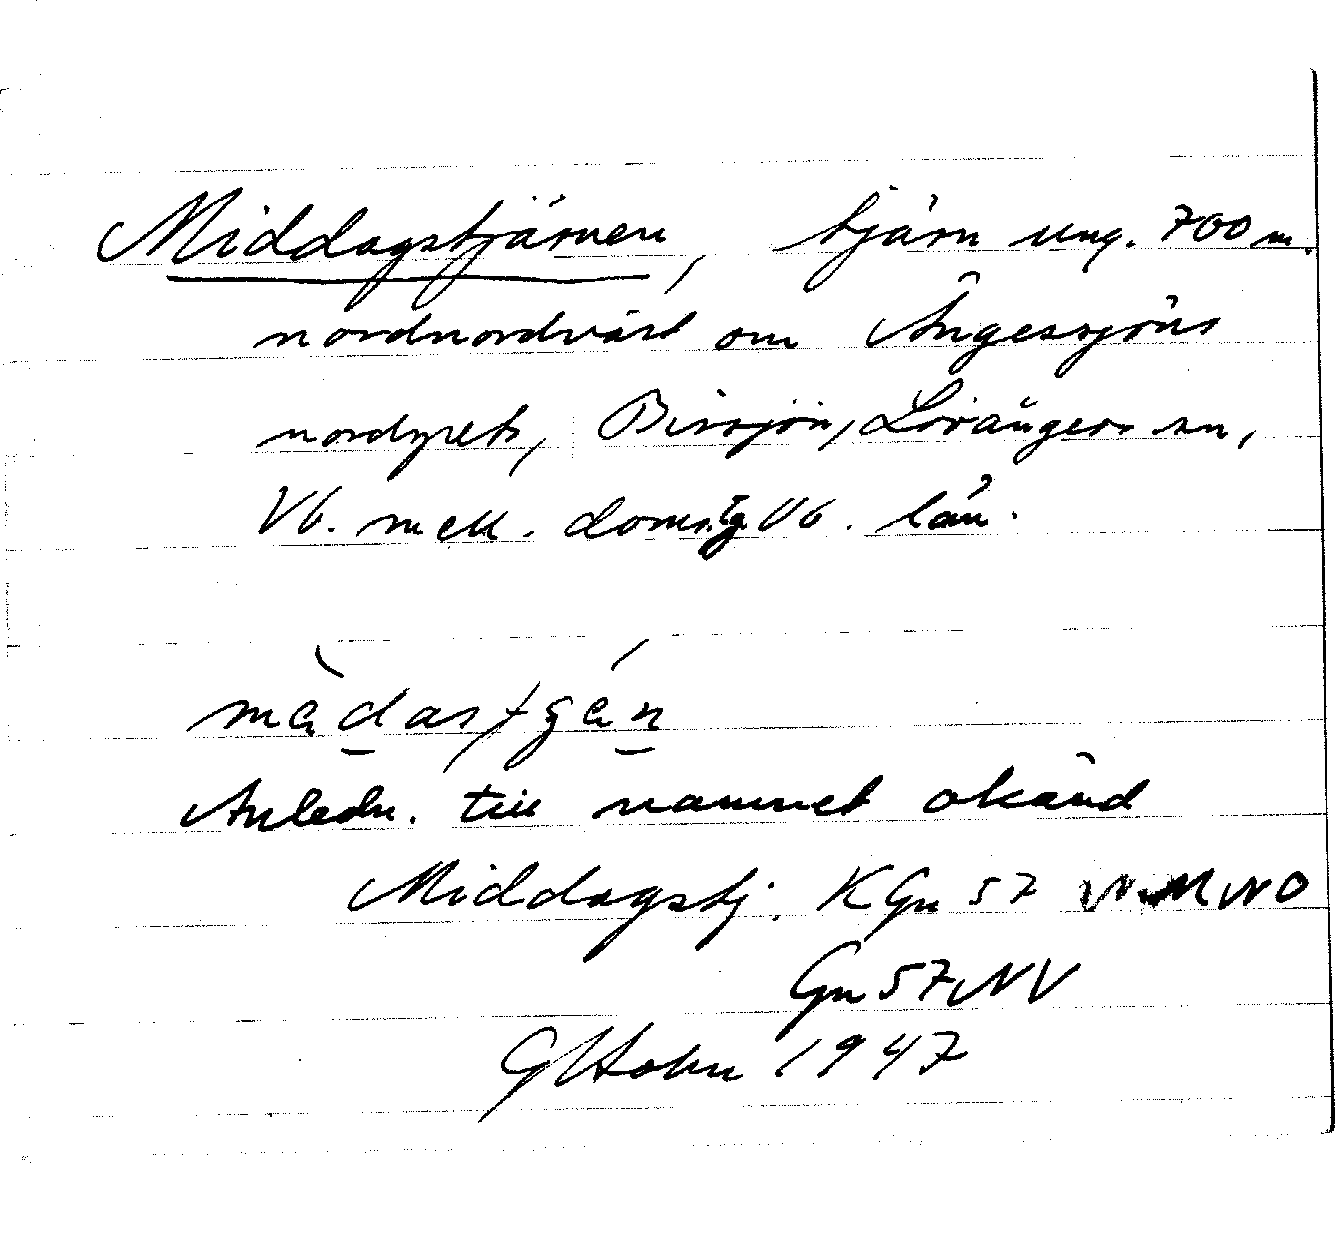 Middagstjärnen, tjärn ung. 700 m.
nordnordväst om Ångessjöns
nordspets, Bissjön, Lövångers sn,
Vb. mell. doms.g Vb. län.
Anledn. till namnet okänd
Middagstj. KGn 57 NO
Gn 57 NV
GHolm 1947